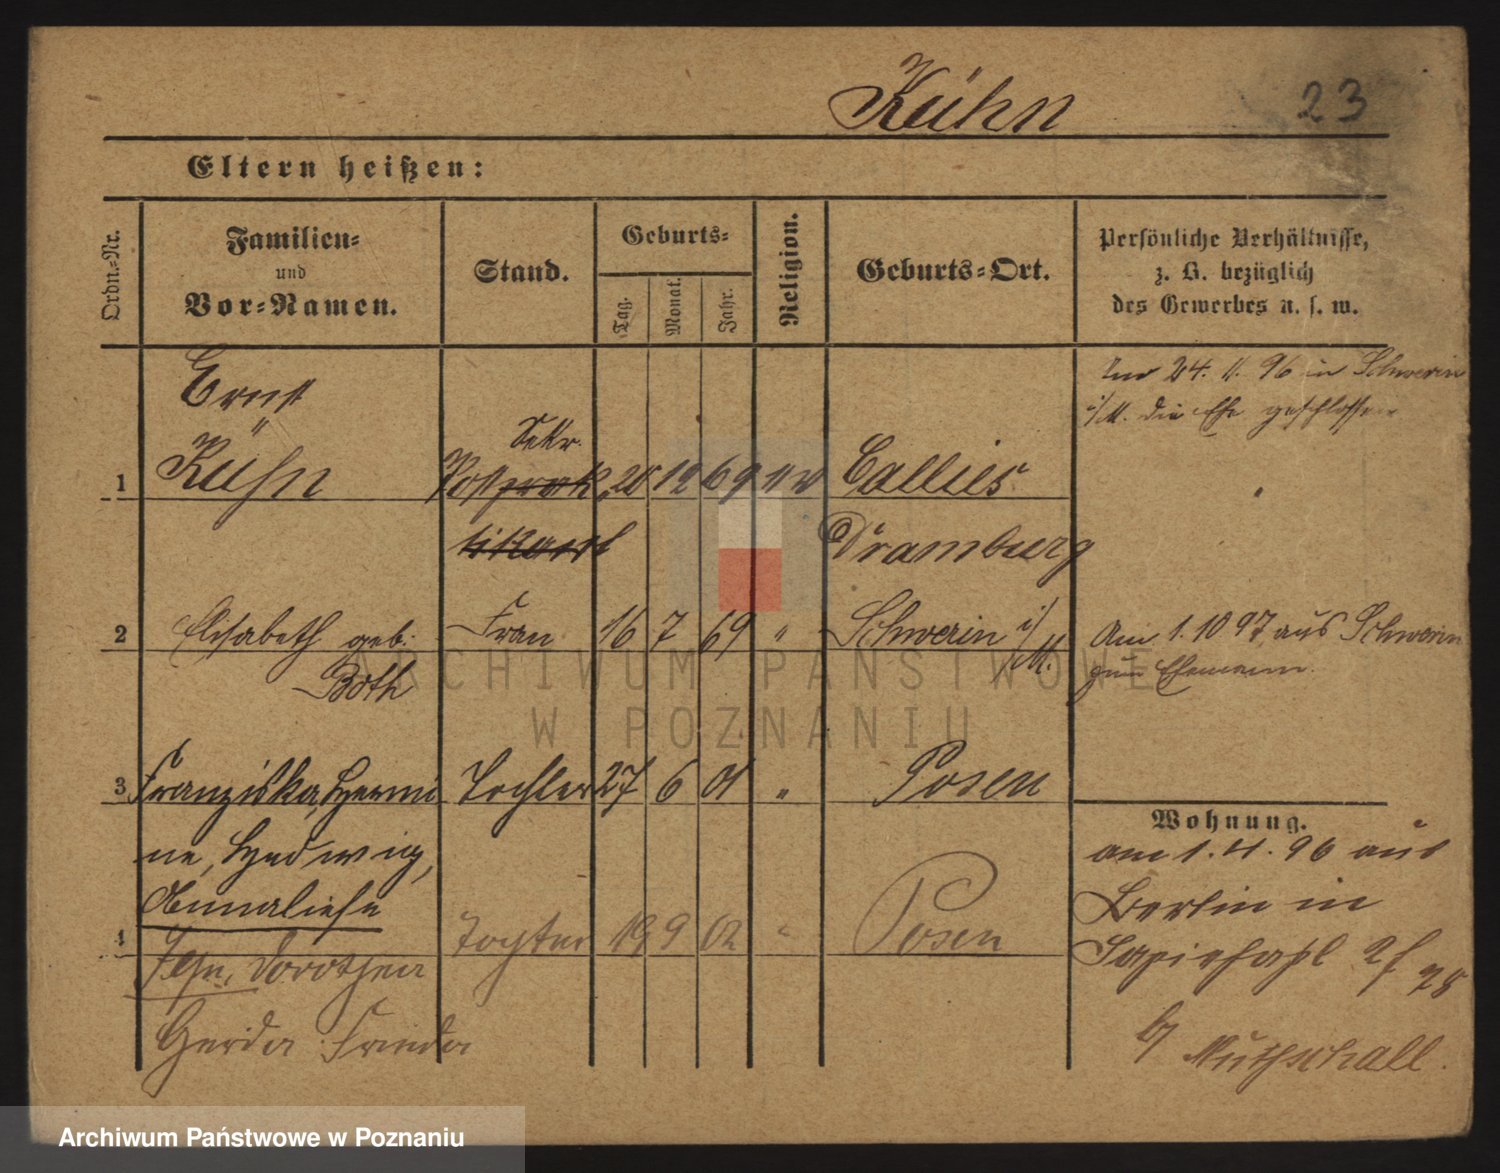 Kühn
23
Eltern heißen:
Ordn.-Nr.
Familien-
und
Vor-Namen.
Stand.
Geburts-
Tag.
Monat.
Jahr.
Religion.
Geburts-Ort.
Persönliche Verhältnisse,
z. B. bezüglich
des Gewerbes u. s. w.
Ernst
Kühn
Sekr.
1
Post
20 12 69 ev
Callies
Dramburg
Im 24. 11. 96 in Schwerin
i/M. die Ehe geschlossen
2
Elisabeth geb.
Both
Frau
16 7 69 "
Schwerin i/M.
Am 1. 10 97 aus Schwerin
zum Ehemann.
3
Franziska, Hermi
ne, Hedwig,
Annaliese
Tochter
27 6 01 "
Posen
4
Dorothea
Gerda Frieda
Tochter
19 9 02 "
Posen
Wohnung.
am 1. 4. 96 aus
Berlin in
Sapiehapl 2f
78
b/
Muthschall.
ARCHIWUM PAŃSTWOWE
W POZNANIU
Archiwum Państwowe w Poznaniu